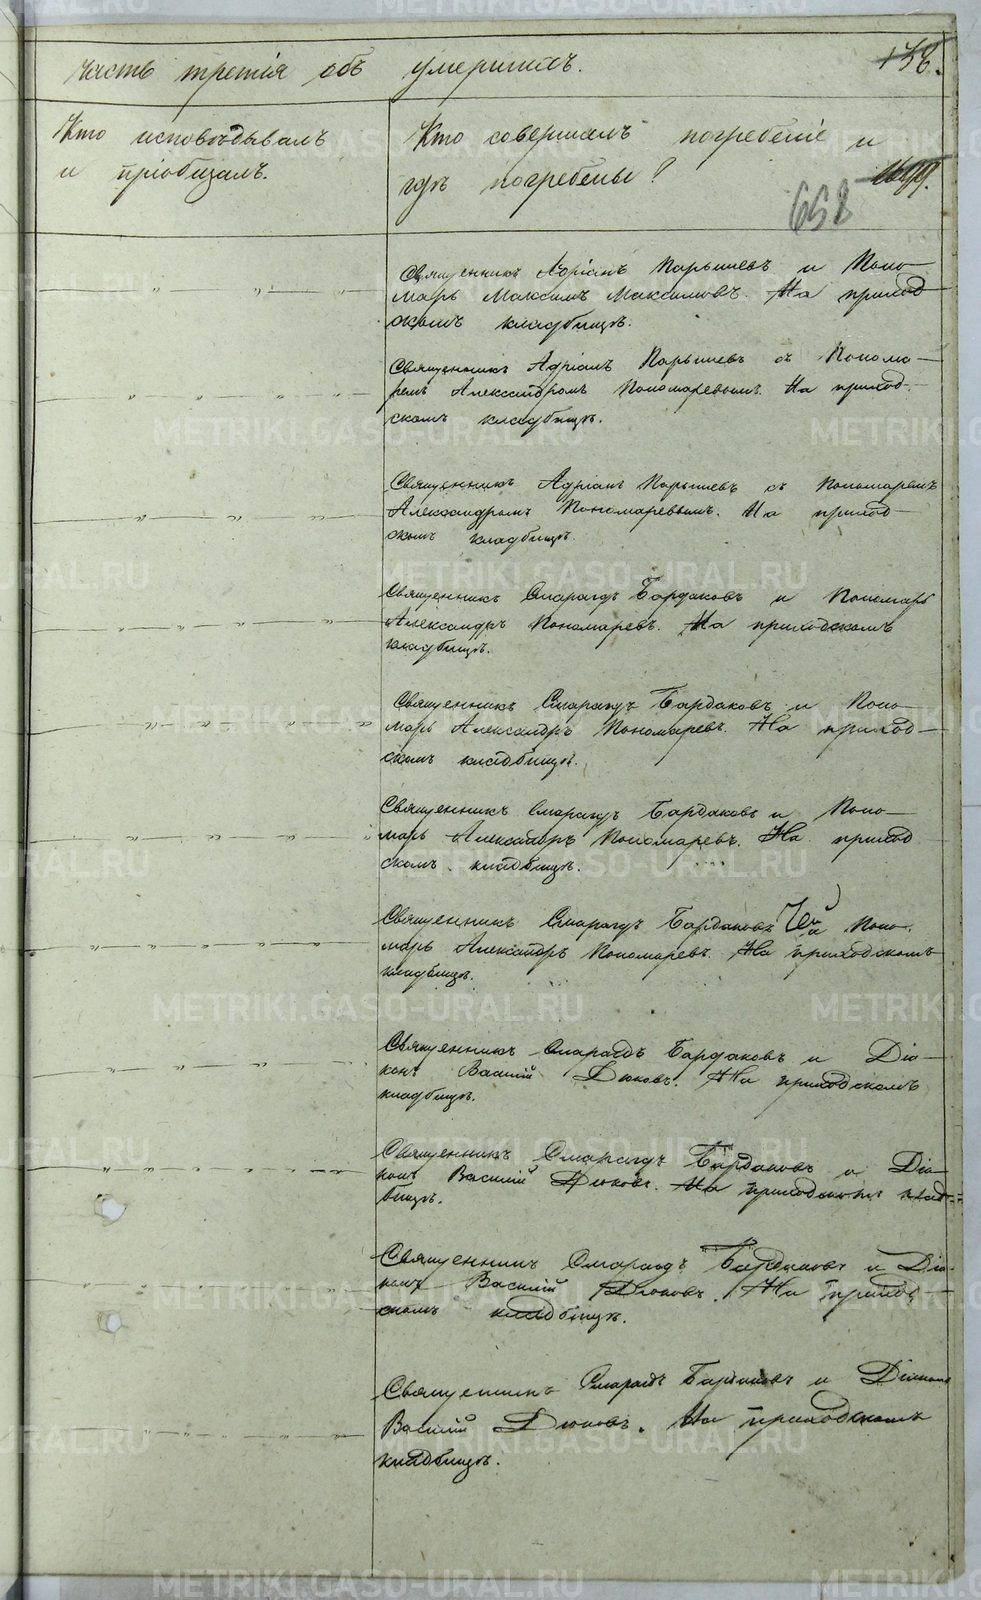 часть третія объ умершихъ.
138.
Кто исповѣдывалъ
и пріобщалъ.
Кто совершалъ погребеніе и
гдѣ погребены?
658
Священникъ Адріанъ Парышевъ и Поно-
марь Максимъ Максимовъ. На приход-
скомъ кладбищѣ.
Священникъ Адріанъ Парышевъ съ Понома-
ремъ Александромъ Пономаревымъ. На приход-
скомъ кладбищѣ.
Священникъ Адріанъ Парышевъ съ Пономаремъ
Александромъ Пономаревымъ. На приход-
скомъ кладбищѣ.
Священникъ Смарагдъ Бардаковъ и Пономарь
Александръ Пономаревъ. На приходскомъ
кладбищѣ.
Священникъ Смарагдъ Бардаковъ и Поно-
марь Александръ Пономаревъ. На приход-
скомъ кладбищѣ.
Священникъ Смарагдъ Бардаковъ и Поно-
марь Александръ Пономаревъ. На приход
скомъ кладбищѣ.
Священникъ Смарагдъ Бардаковъ Поно-
марь Александръ Пономаревъ. На приходскомъ
кладбищѣ.
Священникъ Смарагдъ Бардаковъ и Діа-
конъ Василій Дюковъ. На приходскомъ
кладбищѣ.
Священникъ Смарагдъ Бардаковъ и Діа-
конъ Василій Дюковъ. На приходскомъ клад-
бищѣ.
Священникъ Смарагдъ Бардаковъ и Діа-
конъ Василій Дюковъ. На приход-
скомъ кладбищѣ.
Священникъ Смарагдъ Бардаковъ и Діаконъ
Василій Дюковъ. На приходскомъ
кладбищѣ.
METRIKI.GASO-URAL.RU